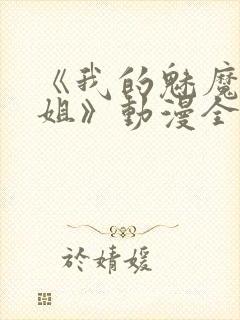 《我的魅魔
姐》動漫全
於婧媛